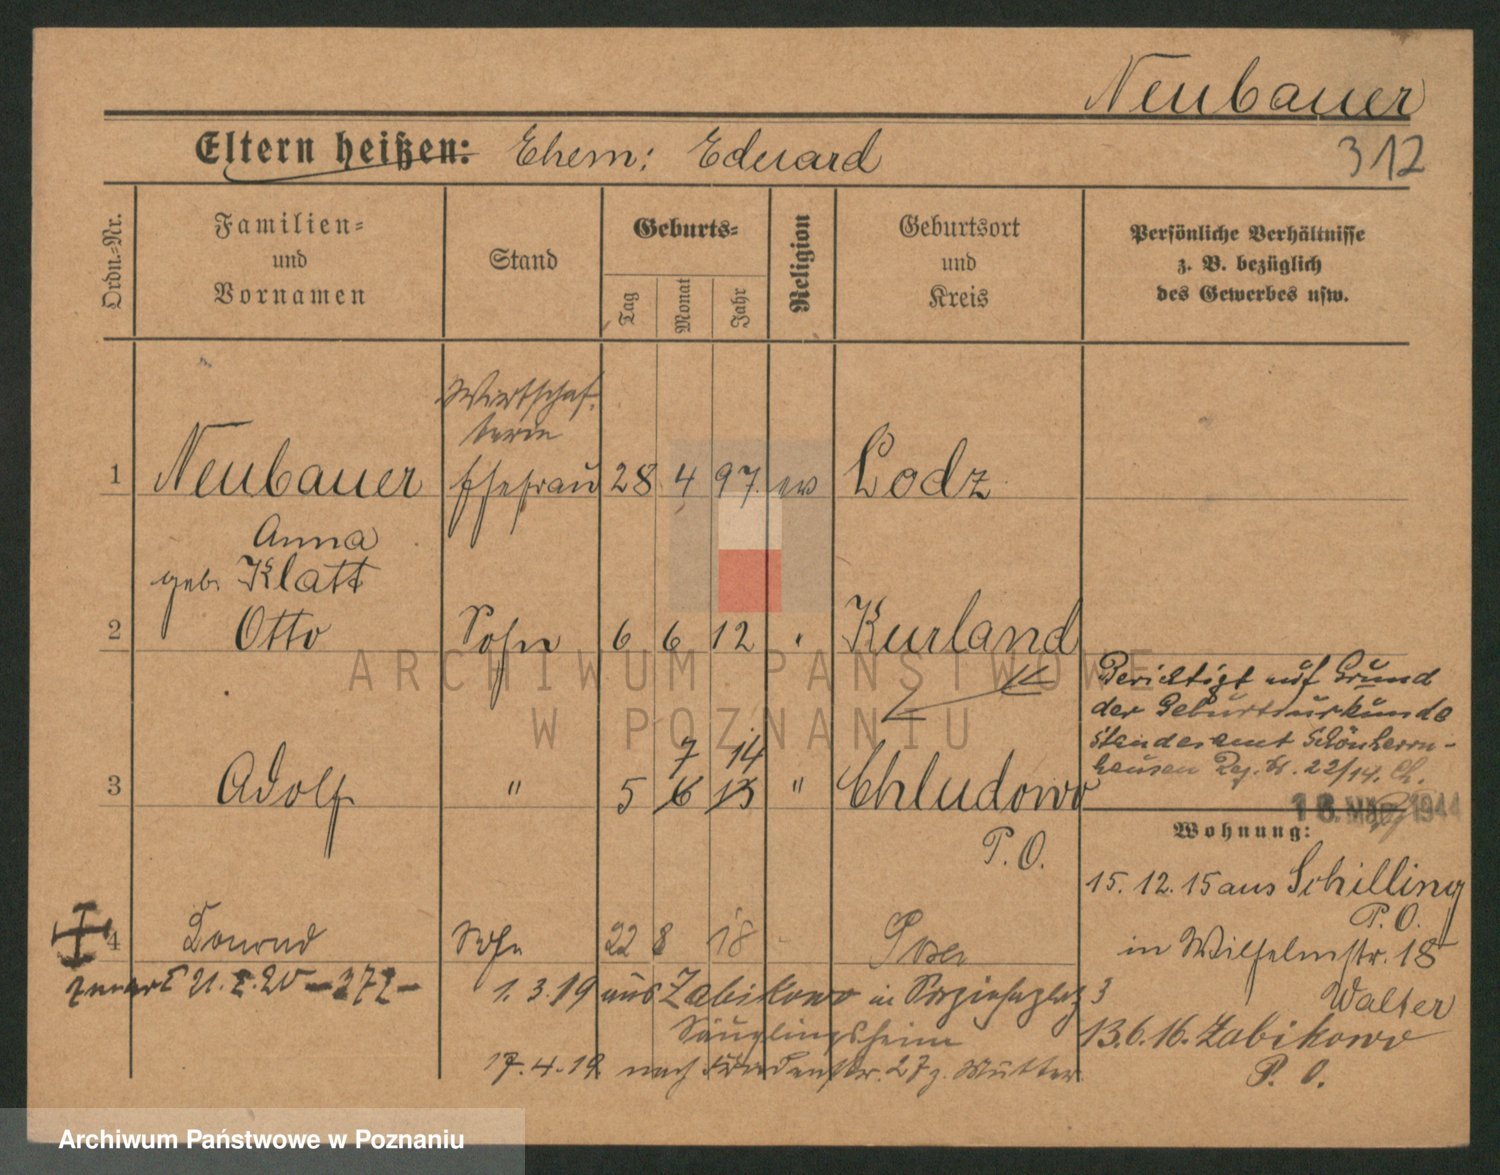 Neubauer
312
Eltern heißen: Ehem: Eduard
Ordn.-Nr.
Familien=
und
Vornamen
Stand
Geburts=
Tag
Monat
Jahr
Religion
Geburtsort
und
Kreis
Persönliche Verhältnisse
z. B. bezüglich
des Gewerbes usw.
Wirtschaf-
terin
1 Neubauer Ehefrau 28 4 97 ev Lodz
Anna
geb. Klatt
2 Otto Sohn 6 6 12 " Kurland
Berichtigt auf Grund
der Geburtsurkunde
Standesamt Schönherrn-
hausen Reg. Nr. 22/14.
18. März 1944
7 14
3 Adolf " 5 6 13 " Chludowo
P. O.
Wohnung:
15. 12. 15 aus Schilling
P. O.
in Wilhelmstr. 18
Walter
13.6.16. Zabikowo
P. O.
4 Konrad Sohn 22 8 18 Posen
21. 2. 20 - 372 -
1. 3. 19 aus Zabikowo in 3
Säuglingsheim
17. 4. 19 nach 27 z. Mutter.
ARCHIWUM PAŃSTWOWE
W POZNANIU
Archiwum Państwowe w Poznaniu